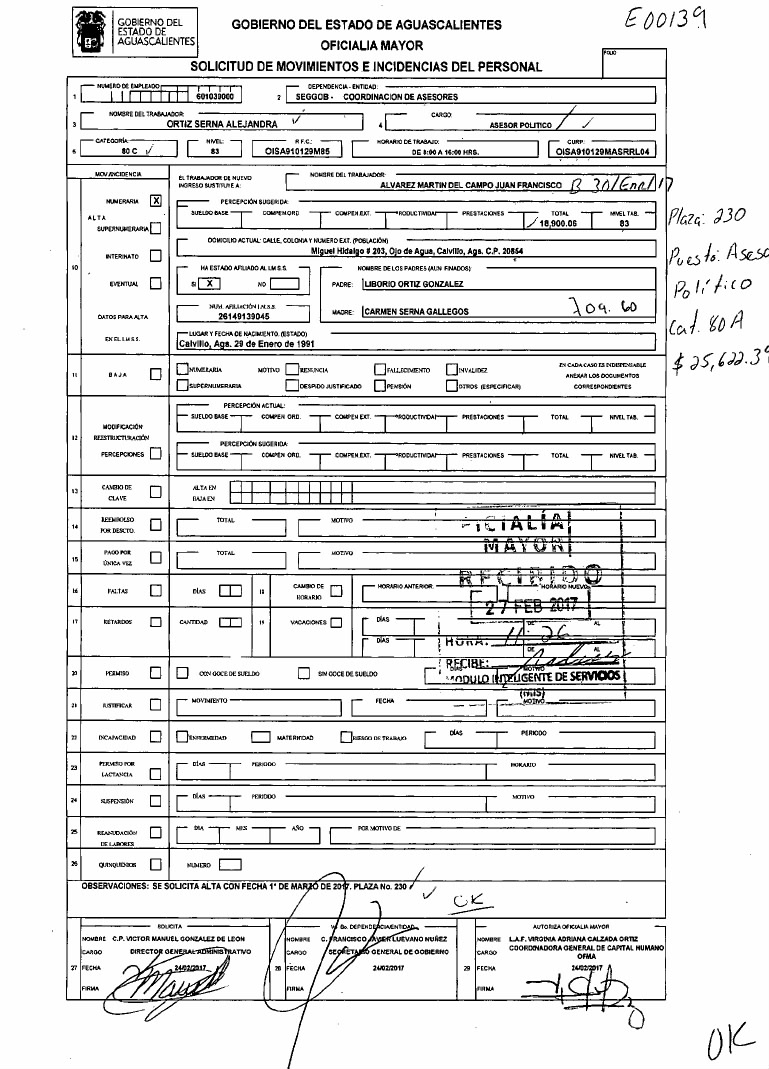 GOBIERNO DEL
ESTADO DE
AGUASCALIENTES
GOBIERNO DEL ESTADO DE AGUASCALIENTES
OFICIALIA MAYOR
SOLICITUD DE MOVIMIENTOS E INCIDENCIAS DEL PERSONAL
E00139
FOLIO
NUMERO DE EMPLEADO
1 601030000
DEPENDENCIA - ENTIDAD:
2 SEGGOB - COORDINACION DE ASESORES
NOMBRE DEL TRABAJADOR:
3 ORTIZ SERNA ALEJANDRA
CARGO:
4 ASESOR POLITICO
CATEGORÍA NIVEL: R.F.C.: HORARIO DE TRABAJO: CURP:
80 C 83 OISA910129M85 DE 8:00 A 16:00 HRS. OISA910129MASRRL04
MOV/INCIDENCIA
EL TRABAJADOR DE NUEVO
INGRESO SUSTITUYE A:
NOMBRE DEL TRABAJADOR:
ALVAREZ MARTIN DEL CAMPO JUAN FRANCISCO B 30/Ene/17
NUMERARIA X
PERCEPCIÓN SUGERIDA:
SUELDO BASE COMPEN ORD. COMPEN EXT. PRODUCTIVIDAD PRESTACIONES TOTAL NIVEL TAB.
18,900.06 83
ALTA
SUPERNUMERARIA
DOMICILIO ACTUAL: CALLE, COLONIA Y NUMERO EXT. (POBLACIÓN)
Miguel Hidalgo # 203, Ojo de Agua, Calvillo, Ags. C.P. 20854
INTERINATO
10
HA ESTADO AFILIADO AL I.M.S.S.
SI X NO
NOMBRE DE LOS PADRES (AUN FINADOS):
EVENTUAL
PADRE: LIBORIO ORTIZ GONZALEZ
NUM. AFILIACIÓN I.M.S.S.
DATOS PARA ALTA 26149139045
MADRE: CARMEN SERNA GALLEGOS
709.60
EN EL I.M.S.S.
LUGAR Y FECHA DE NACIMIENTO. (ESTADO)
Calvillo, Ags. 29 de Enero de 1991
Plaza: 230
Puesto: Aseso
Político
Cat. 80 A
$ 25,622.39
11 BAJA
NUMERARIA MOTIVO RENUNCIA FALLECIMIENTO INVALIDEZ
SUPERNUMERARIA DESPIDO JUSTIFICADO PENSIÓN OTROS (ESPECIFICAR)
EN CADA CASO ES INDISPENSABLE
ANEXAR LOS DOCUMENTOS
CORRESPONDIENTES
PERCEPCIÓN ACTUAL:
SUELDO BASE COMPEN ORD. COMPEN EXT. PRODUCTIVIDAD PRESTACIONES TOTAL NIVEL TAB.
12 MODIFICACIÓN
REESTRUCTURACIÓN
PERCEPCIONES
PERCEPCIÓN SUGERIDA:
SUELDO BASE COMPEN ORD. COMPEN EXT. PRODUCTIVIDAD PRESTACIONES TOTAL NIVEL TAB.
13 CAMBIO DE
CLAVE
ALTA EN
BAJA EN
14 REEMBOLSO
POR DESCTO.
TOTAL MOTIVO
15 PAGO POR
ÚNICA VEZ
TOTAL MOTIVO
16 FALTAS DÍAS 18 CAMBIO DE
HORARIO
HORARIO ANTERIOR: HORARIO NUEVO:
17 RETARDOS CANTIDAD 19 VACACIONES
DÍAS DE AL
DÍAS DE AL
OFICIALÍA
MAYOR
RECIBIDO
27 FEB 2017
HORA: 11:26
RECIBE:
MODULO INTELIGENTE DE SERVICIOS
(MIS)
20 PERMISO CON GOCE DE SUELDO SIN GOCE DE SUELDO DÍAS MOTIVO
21 JUSTIFICAR MOVIMIENTO FECHA MOTIVO
22 INCAPACIDAD ENFERMEDAD MATERNIDAD RIESGO DE TRABAJO DÍAS PERIODO
23 PERMISO POR
LACTANCIA
DÍAS PERIODO HORARIO
24 SUSPENSIÓN DÍAS PERIODO MOTIVO
25 REANUDACIÓN
DE LABORES
DIA MES AÑO POR MOTIVO DE
26 QUINQUENIOS NUMERO
OBSERVACIONES: SE SOLICITA ALTA CON FECHA 1° DE MARZO DE 2017. PLAZA No. 230
OK
SOLICITA
NOMBRE C.P. VICTOR MANUEL GONZALEZ DE LEON
CARGO DIRECTOR GENERAL ADMINISTRATIVO
27 FECHA 24/02/2017
FIRMA
Vo. Bo. DEPENDENCIA/ENTIDAD
NOMBRE C. FRANCISCO JAVIER LUEVANO NUÑEZ
CARGO SECRETARIO GENERAL DE GOBIERNO
28 FECHA 24/02/2017
FIRMA
AUTORIZA OFICIALIA MAYOR
NOMBRE L.A.F. VIRGINIA ADRIANA CALZADA ORTIZ
CARGO COORDINADORA GENERAL DE CAPITAL HUMANO
OFMA
29 FECHA 24/02/2017
FIRMA
OK